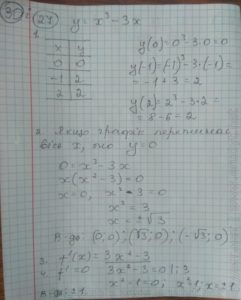 35 27 y = x³ - 3x
1.
x y
0 0
-1 2
2 2
y(0) = 0³ - 3·0 = 0
y(-1) = (-1)³ - 3·(-1) =
= -1 + 3 = 2
y(2) = 2³ - 3·2 =
= 8 - 6 = 2
2. Якщо графік перетинає
вісь x, то y = 0
0 = x³ - 3x
x(x² - 3) = 0
x = 0, x² - 3 = 0
x² = 3
x = ±√3
В-дь: (0; 0); (√3; 0); (-√3; 0)
3. f'(x) = 3x² - 3
4. f' = 0 3x² - 3 = 0 | : 3
x² - 1 = 0; x² = 1; x = ±1
В-дь: ±1